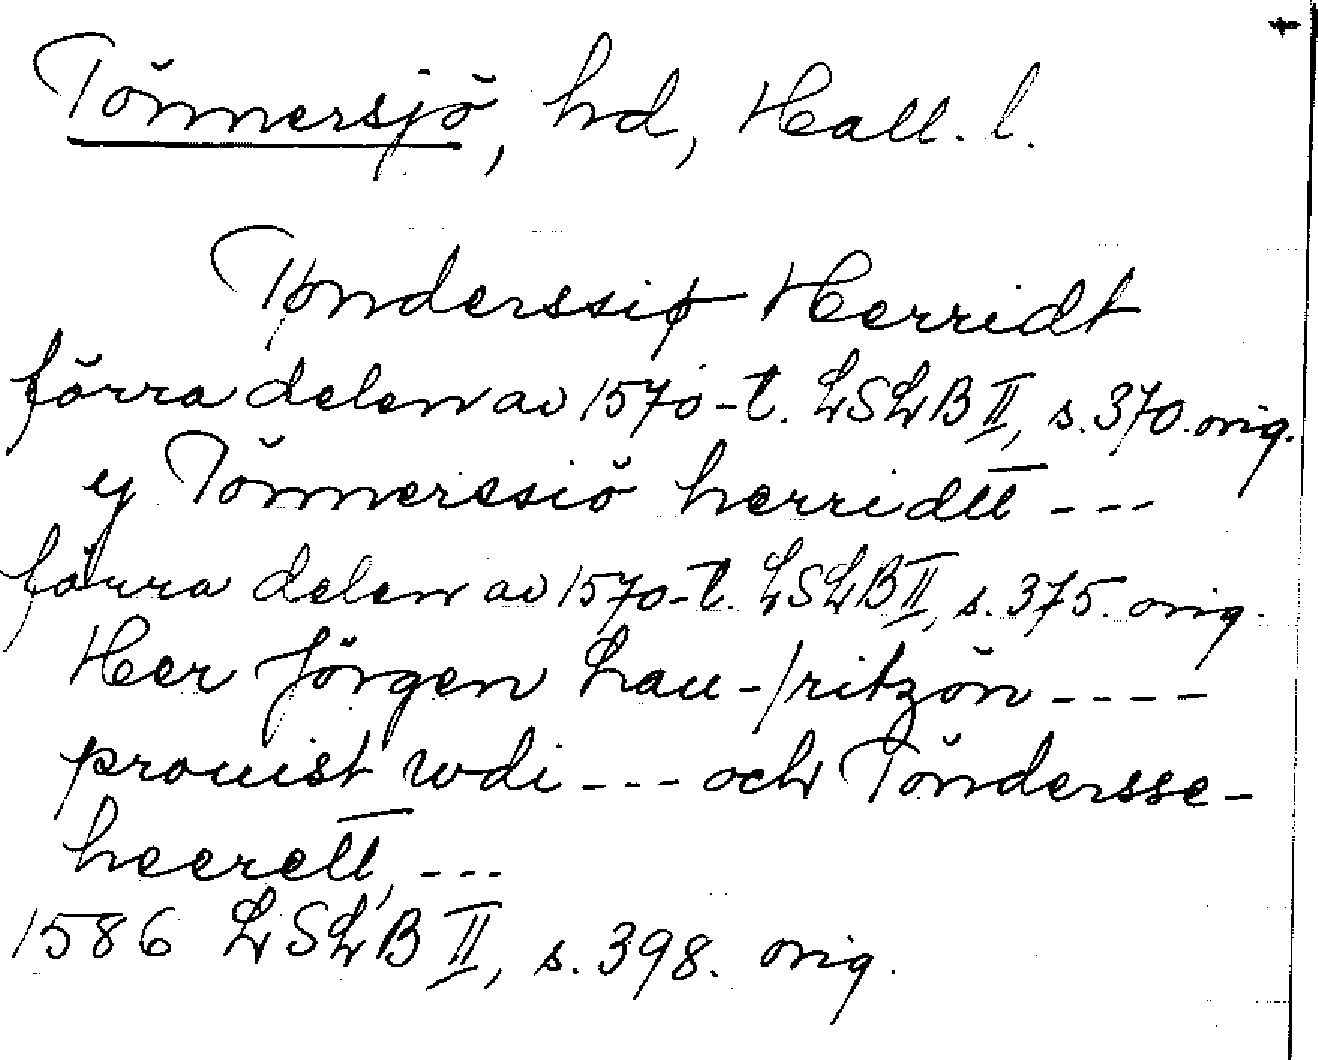 Tönnersjö, hd, Hall. l.
Tønderssiø Herridt
förra delen av 1570-t. LSLB II, s. 370. orig.
y Tönnerssiö herridtt ---
förra delen av 1570-t. LSLB II, s. 375. orig.
Her Jörgen Lau-/ritzön ----
prouist wdi --- och Töndersse-
heerett, ---
1586 LSLB II, s. 398. orig.